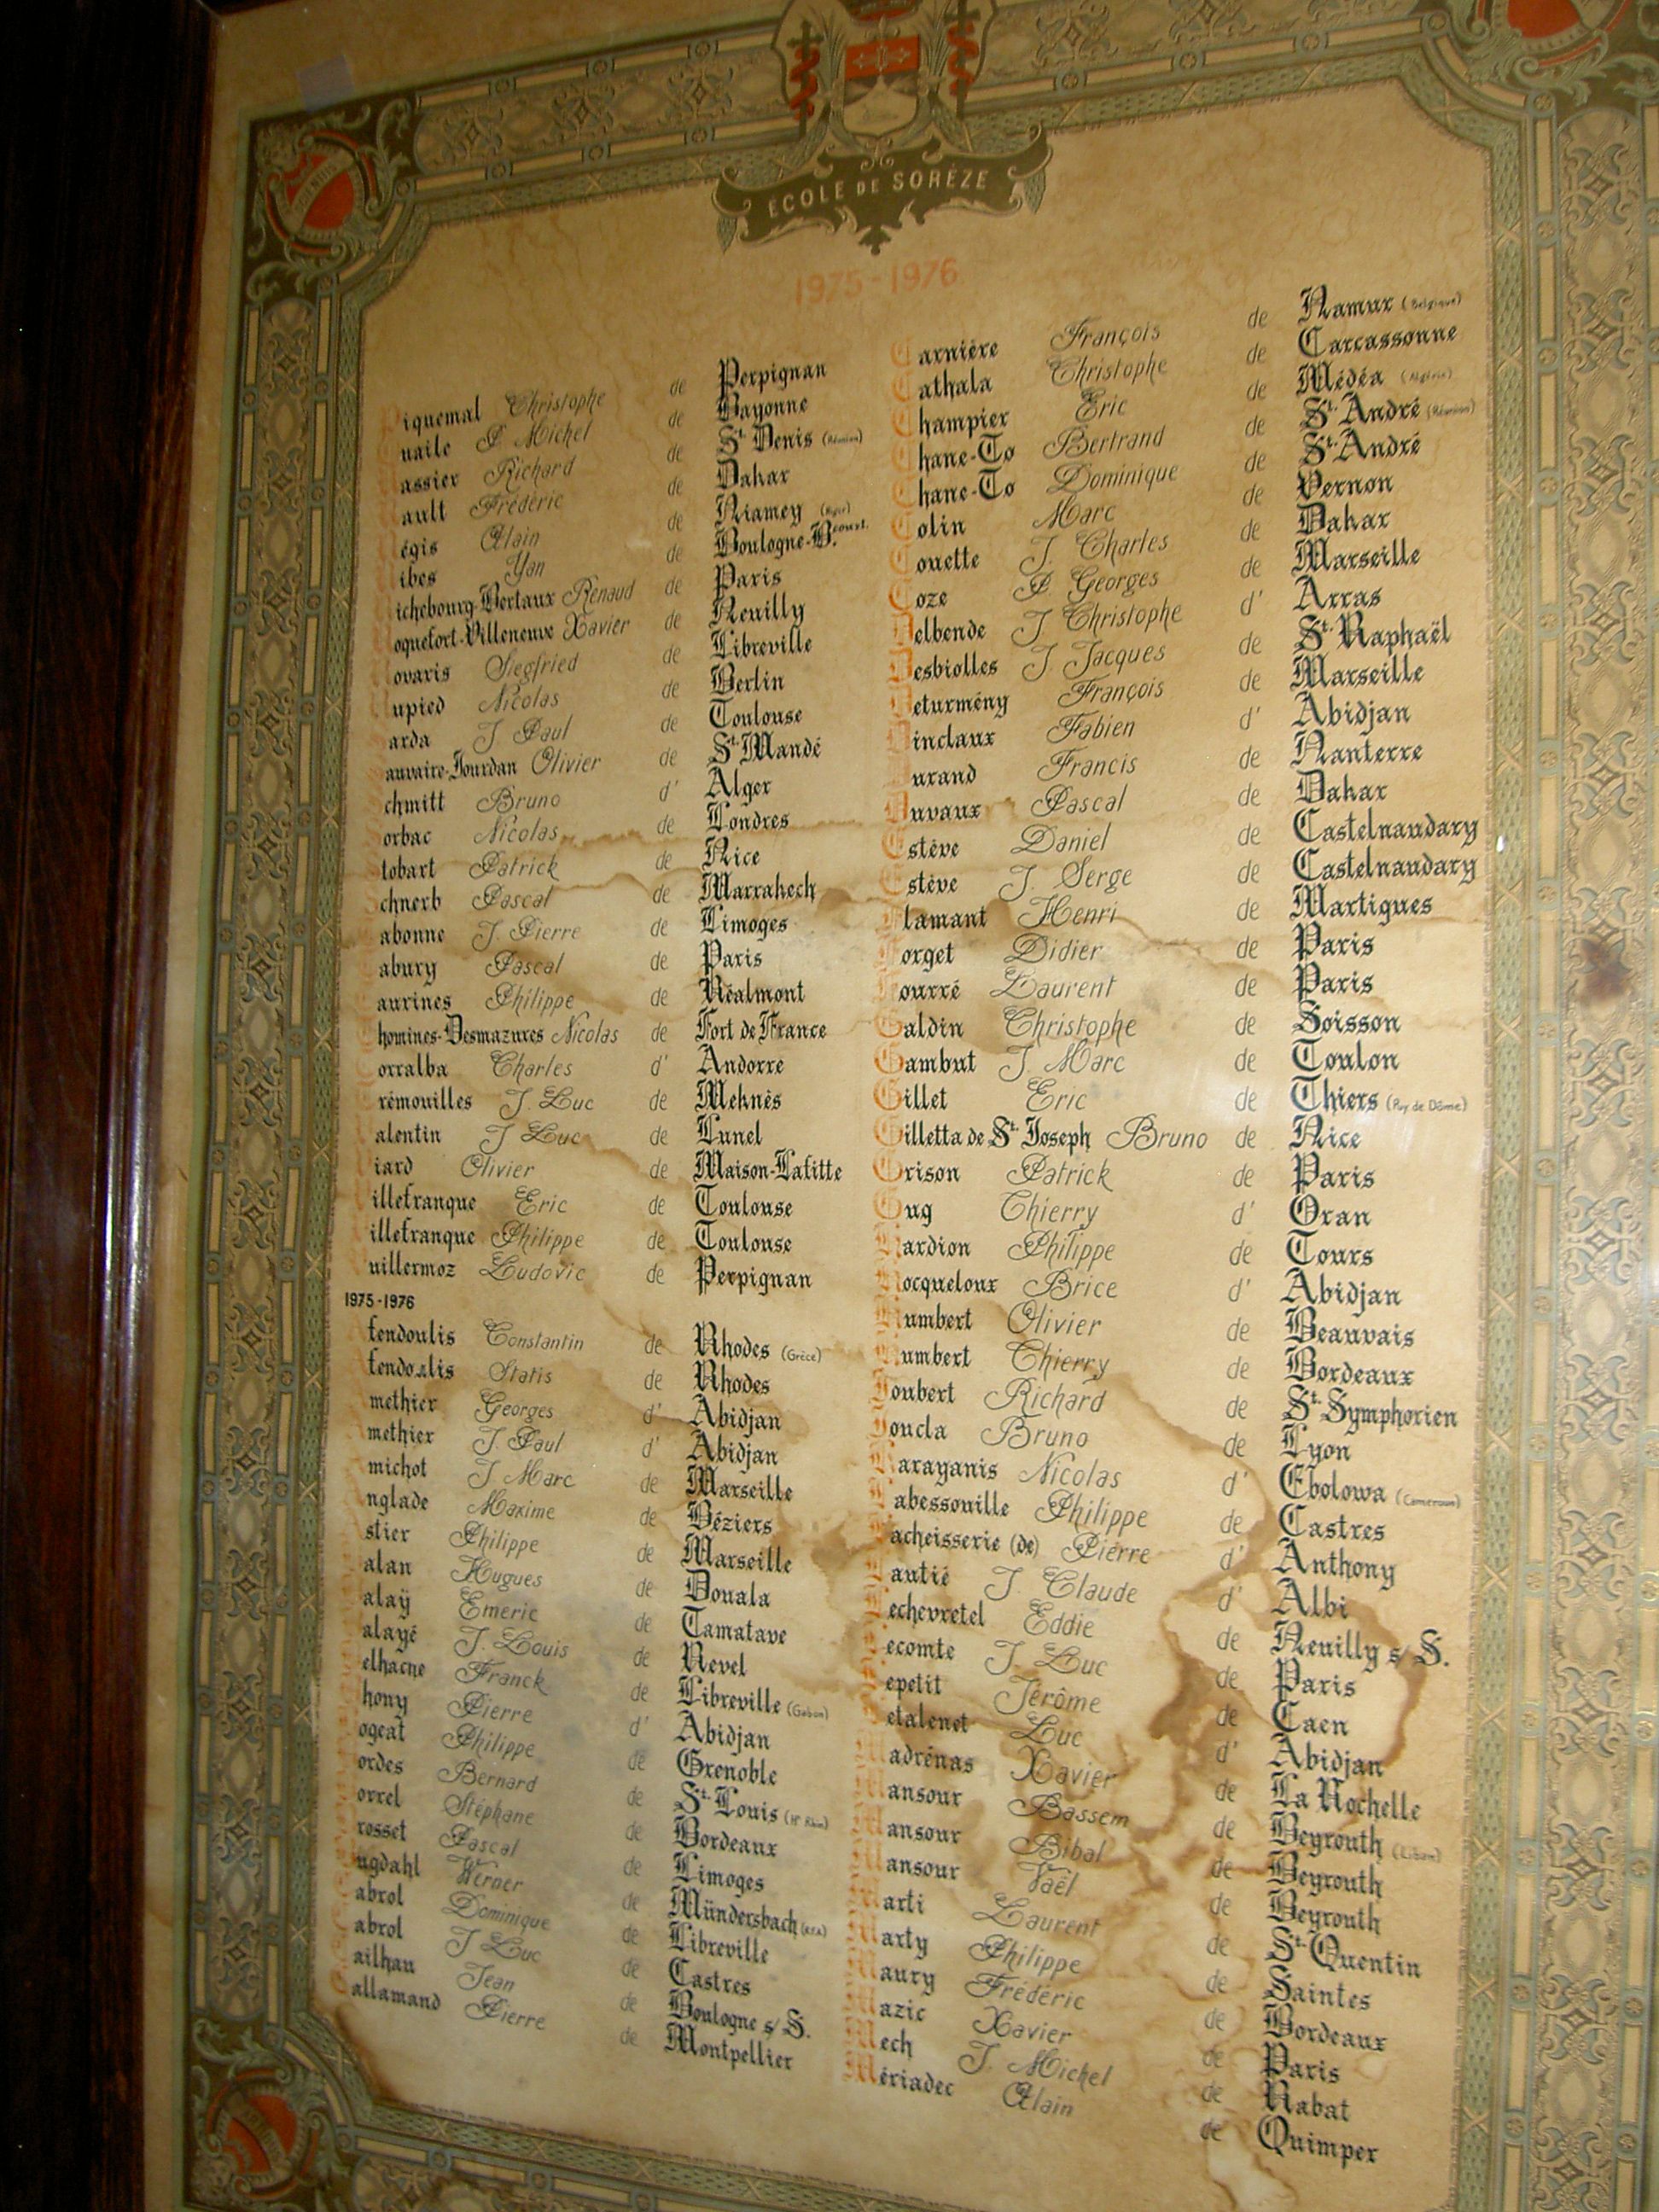 ÉCOLE DE SORÈZE
1975-1976
Piquemal Christophe de Perpignan
uaile P Michel de Bayonne
assier Richard de St Denis (Réunion)
ault Frédéric de Dakar
Régis Alain de Niamey (Niger)
Ribes Yan de Boulogne-B.court.
Richebourg-Bertaux Renaud de Paris
Roquefort-Villeneuve Xavier de Neuilly
Rovaris Siegfried de Libreville
Rupied Nicolas de Berlin
Sarda J Paul de Toulouse
Sauvaire-Jourdan Olivier de St Mandé
Schmitt Bruno d' Alger
Sorbac Nicolas de Londres
Stobart Patrick de Nice
Schnerb Pascal de Marrakech
Tabonne J. Pierre de Limoges
Tabury Pascal de Paris
Taurines Philippe de Réalmont
Thomines-Desmazures Nicolas de Fort de France
Torralba Charles d' Andorre
Trémouilles J. Luc de Meknès
Valentin J Luc de Lunel
Viard Olivier de Maison-Lafitte
Villefranque Eric de Toulouse
Villefranque Philippe de Toulouse
Vuillermoz Ludovic de Perpignan
1975-1976
fendoulis Constantin de Rhodes (Grèce)
fendoulis Statis de Rhodes
methier Georges d' Abidjan
methier J. Paul d' Abidjan
michot J Marc de Marseille
nglade Maxime de Béziers
stier Philippe de Marseille
alan Hugues de Douala
alaÿ Emeric de Tamatave
alayé J. Louis de Revel
elhacne Franck de Libreville (Gabon)
hony Pierre d' Abidjan
ogeat Philippe de Grenoble
ordes Bernard de St Louis (Ht Rhin)
orrel Stéphane de Bordeaux
rosset Pascal de Limoges
ugdahl Werner de Mündersbach (R.F.A)
abrol Dominique de Libreville
abrol J Luc de Castres
ailhau Jean de Boulogne s/ S.
Callamand Pierre de Montpellier
Carnière François de Namur (Belgique)
Cathala Christophe de Carcassonne
Champier Eric de Médéa (Algérie)
Chane-To Bertrand de St André (Réunion)
Chane-To Dominique de St André
Colin Marc de Vernon
Couette J. Charles de Dakar
Coze P Georges de Marseille
Delbende J Christophe d' Arras
Desbiolles J. Jacques de St Raphaël
Deturmény François de Marseille
Dinclaux Fabien d' Abidjan
Durand Francis de Nanterre
Duvaux Pascal de Dakar
Estève Daniel de Castelnaudary
Estève J. Serge de Castelnaudary
Flamant Henri de Martigues
Forget Didier de Paris
Fourré Laurent de Paris
Galdin Christophe de Soisson
Gambut J. Marc de Toulon
Gillet Eric de Thiers (Puy de Dôme)
Gilletta de St Joseph Bruno de Nice
Grison Patrick de Paris
Gug Thierry d' Oran
Hardion Philippe de Tours
Hocqueloux Brice d' Abidjan
Humbert Olivier de Beauvais
Humbert Thierry de Bordeaux
Joubert Richard de St Symphorien
Joucla Bruno de Lyon
Karayanis Nicolas d' Ebolowa (Cameroun)
Labessouille Philippe de Castres
Lacheisserie (de) Pierre d' Anthony
Lautié J. Claude d' Albi
Lechevretel Eddie de Neuilly s/ S.
Lecomte J. Luc de Paris
Lepetit Jérôme de Caen
Letalenet Luc d' Abidjan
Madrénas Xavier de La Rochelle
Mansour Bassem de Beyrouth (Liban)
Mansour Bibal de Beyrouth
Mansour Vaël de Beyrouth
Marti Laurent de St Quentin
Marty Philippe de Saintes
Maury Frédéric de Bordeaux
Mazic Xavier de Paris
Mech J. Michel de Rabat
Mériadec Alain de Quimper